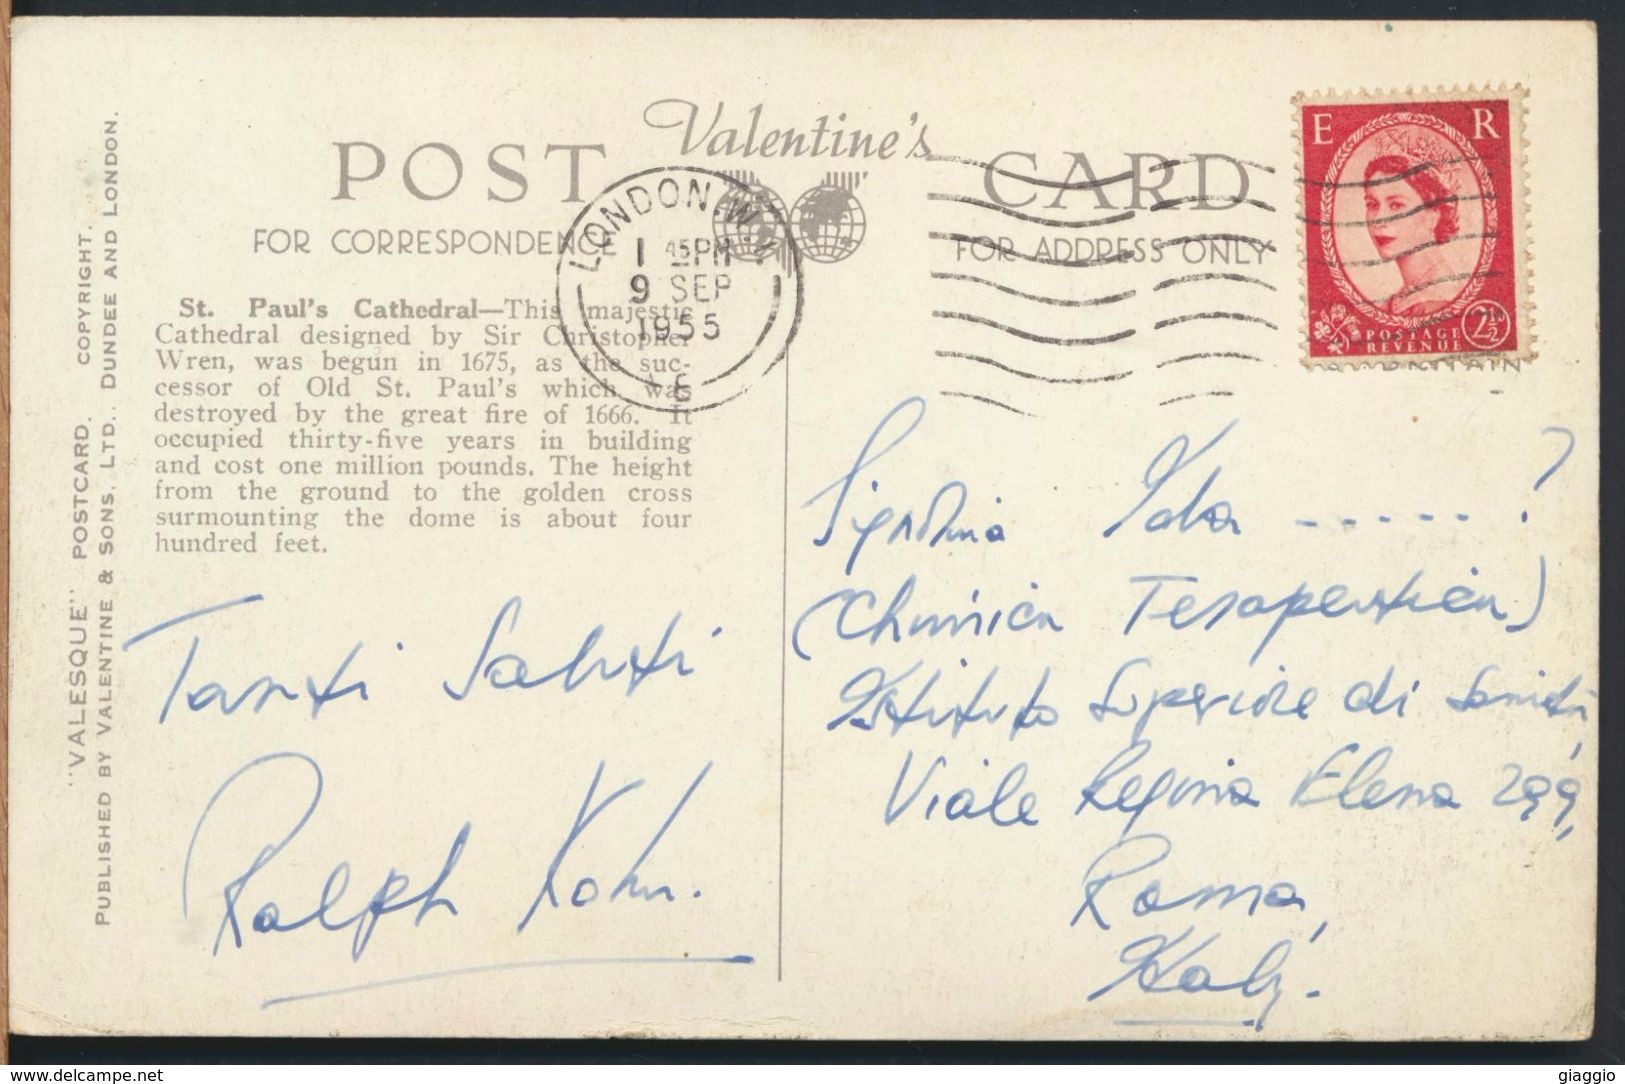 Valentine's
POST CARD
FOR CORRESPONDENCE
FOR ADDRESS ONLY
LONDON. W.1
1 45 PM
9 SEP
1955
E
E R
POSTAGE
REVENUE
2½
St. Paul's Cathedral—This majestic
Cathedral designed by Sir Christopher
Wren, was begun in 1675, as the suc-
cessor of Old St. Paul's which was
destroyed by the great fire of 1666. It
occupied thirty-five years in building
and cost one million pounds. The height
from the ground to the golden cross
surmounting the dome is about four
hundred feet.
"VALESQUE" POSTCARD. COPYRIGHT.
PUBLISHED BY VALENTINE & SONS, LTD., DUNDEE AND LONDON.
Tanti Saluti
Ralph Kohn.
Signorina Ida ------ ?
(Chimica Terapeutica)
Istituto Superiore di Sanità,
Viale Regina Elena 299,
Roma,
Italy.
www.delcampe.net
giaggio